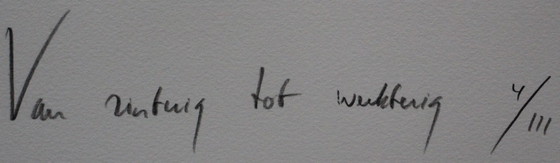 Van zintuig tot werktuig 4/III